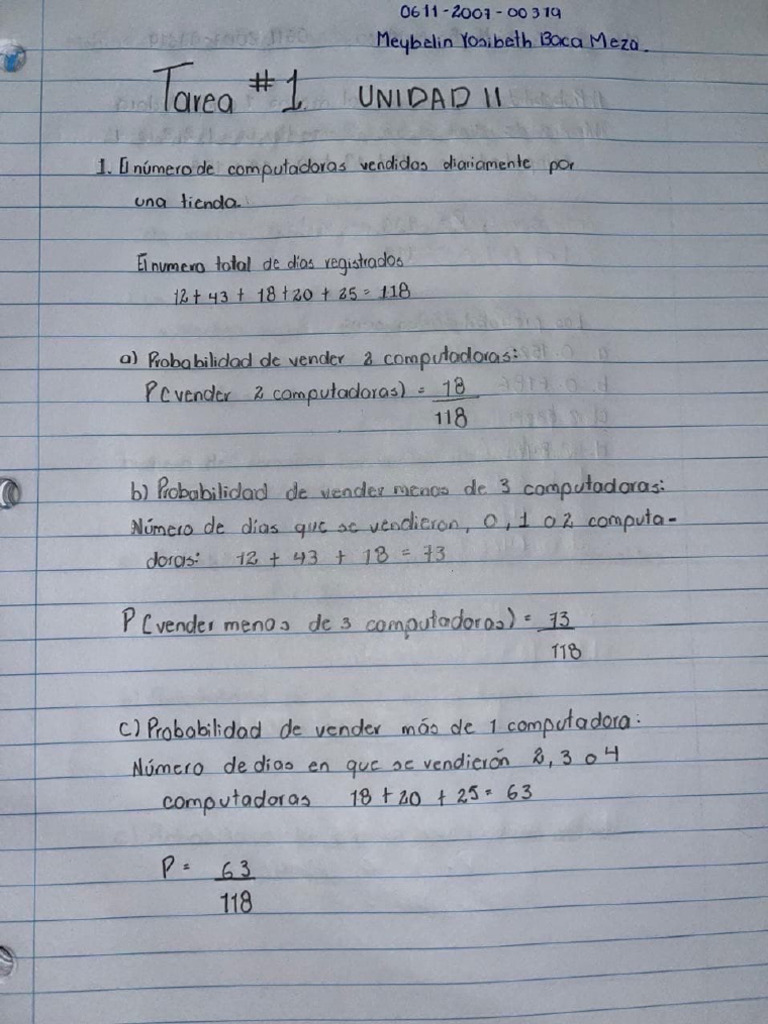 0611-2007-00319
Meybelin Yosibeth Baca Meza.
Tarea #1. UNIDAD II
1. El número de computadoras vendidas diariamente por
una tienda.
El numero total de dias registrados
12 + 43 + 18 + 20 + 25 = 118
a) Probabilidad de vender 2 computadoras:
P(vender 2 computadoras) = 18
118
b) Probabilidad de vender menos de 3 computadoras:
Número de dias que se vendieron, 0, 1 o 2 computa-
doras: 12 + 43 + 18 = 73
P(vender menos de 3 computadoras) = 73
118
c) Probabilidad de vender más de 1 computadora:
Número de dias en que se vendierón 2, 3 o 4
computadoras 18 + 20 + 25 = 63
P = 63
118